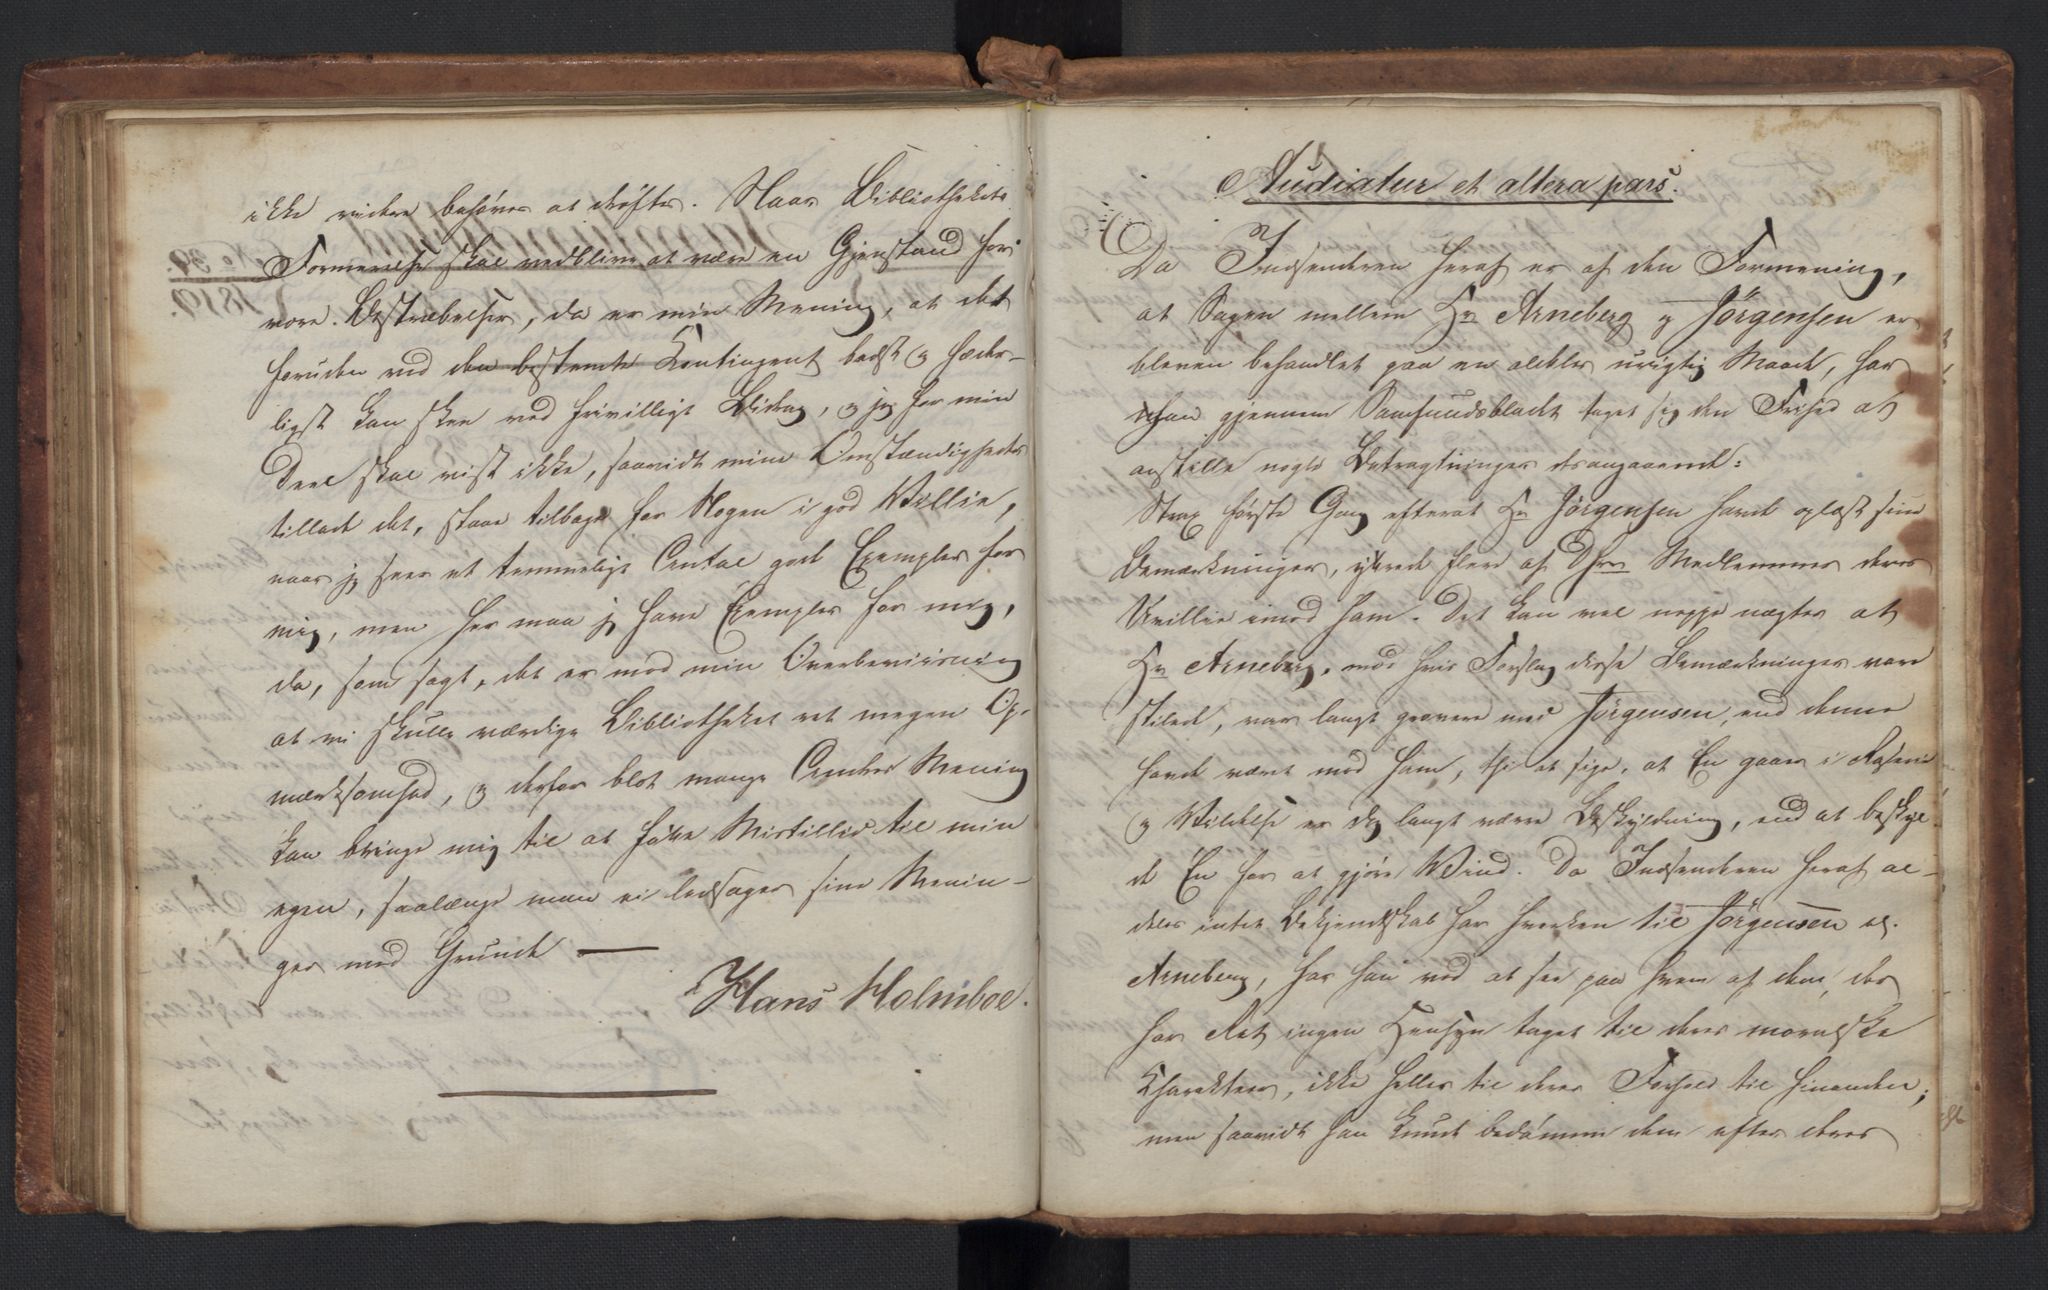 ikke videre behøves at drøftes. Naar Bibliothekets
Formerelse skal vedblive at være en Gjenstand for
vore Bestræbelser, da er min Mening, at det
foruden ved den bestemte Contingent bedst og hæder-
ligst kan skee ved frivilligt Bidrag, og jeg for min
Deel skal vist ikke, saavidt mine Omstændigheder
tillade det, staae tilbage for Nogen i god Villie,
naar jeg seer et temmeligt Antal gode Exempler for
mig, men her maa jeg have Exempler for mig,
da, som sagt, det er mod min Overbeviisning
at vi skulle værdige Bibliotheket ret megen Op-
mærksomhed, og derfor blot mange Andres Mening
kan bringe mig til at fatte Mistillid til min
egen, saalænge man ei ledsager sine Menin-
ger med Grunde —
Hans Holmboe.
No 39.
1819.
Audiatur et altera pars.
Da Indsenderen heraf er af den Formening,
at Sagen mellem Hr Arneberg og Jörgensen er
bleven behandlet paa en aldeles urigtig Maade, har
han gjennem Samfundsbladet taget sig den Frihed at
anstille nogle Betragtninger desangaaende:
Strax første Gang efterat Hr Jörgensen havde oplæst sine
Bemærkninger, yttrede flere af DHrr Medlemmer deres
Uvillie imod ham. Det kan vel neppe nægtes at
Hr Arneberg, mod hvis Forslag disse Bemærkninger vare
stilede, var langt grovere mod Jörgensen, end denne
havde været mod ham, thi at sige, at En gaaer i Raseri
og Vildelse er dog langt værre Beskyldning, end at beskyl-
de En for at gjöre Vind. Da Indsenderen heraf al-
deles intet Bekjendtskab har hverken til Jörgensen el.
Arneberg, har han ved at see paa hvem af dem, der
har Ret ingen Hensyn taget til deres moralske
Charakteer, ikke heller til deres Forhold til hinanden;
men saavidt han kunde bedömme dem efter deres